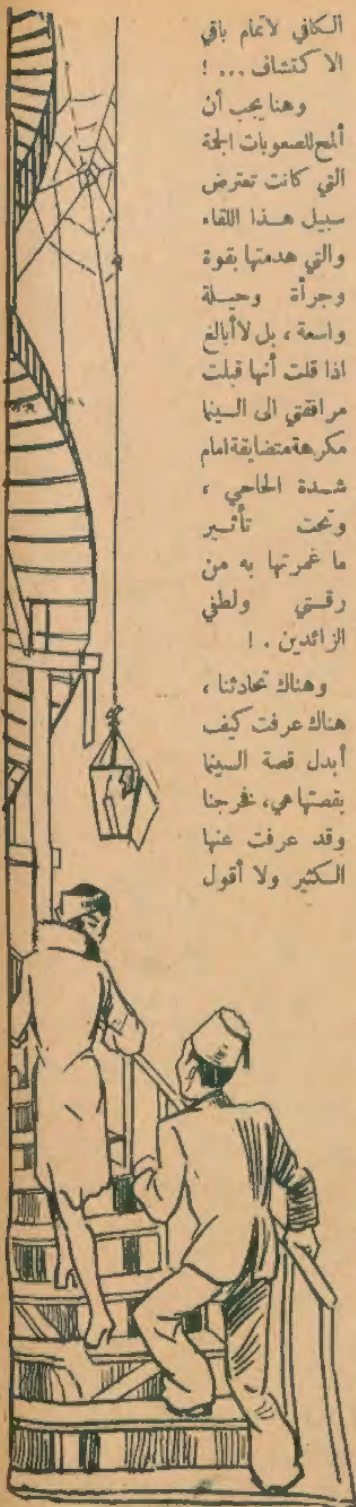 الكافي لاتمام باقي
الاكتشاف ... !
وهنا يجب أن
ألمح للصعوبات الجمة
التي كانت تعترض
سبيل هذا اللقاء
والتي هدمتها بقوة
وجرأة وحيلة
واسعة ، بل لا أبالغ
اذا قلت أنها قبلت
مرافقتي الى السينما
مكرهة متضايقة امام
شدة الحاحي ،
وتحت تأثير
ما غمرتها به من
رقتي ولطفي
الزائدين . !
وهناك تحادثنا ،
هناك عرفت كيف
أبدل قصة السينما
بقصتها هي، فخرجنا
وقد عرفت عنها
الكثير ولا أقول